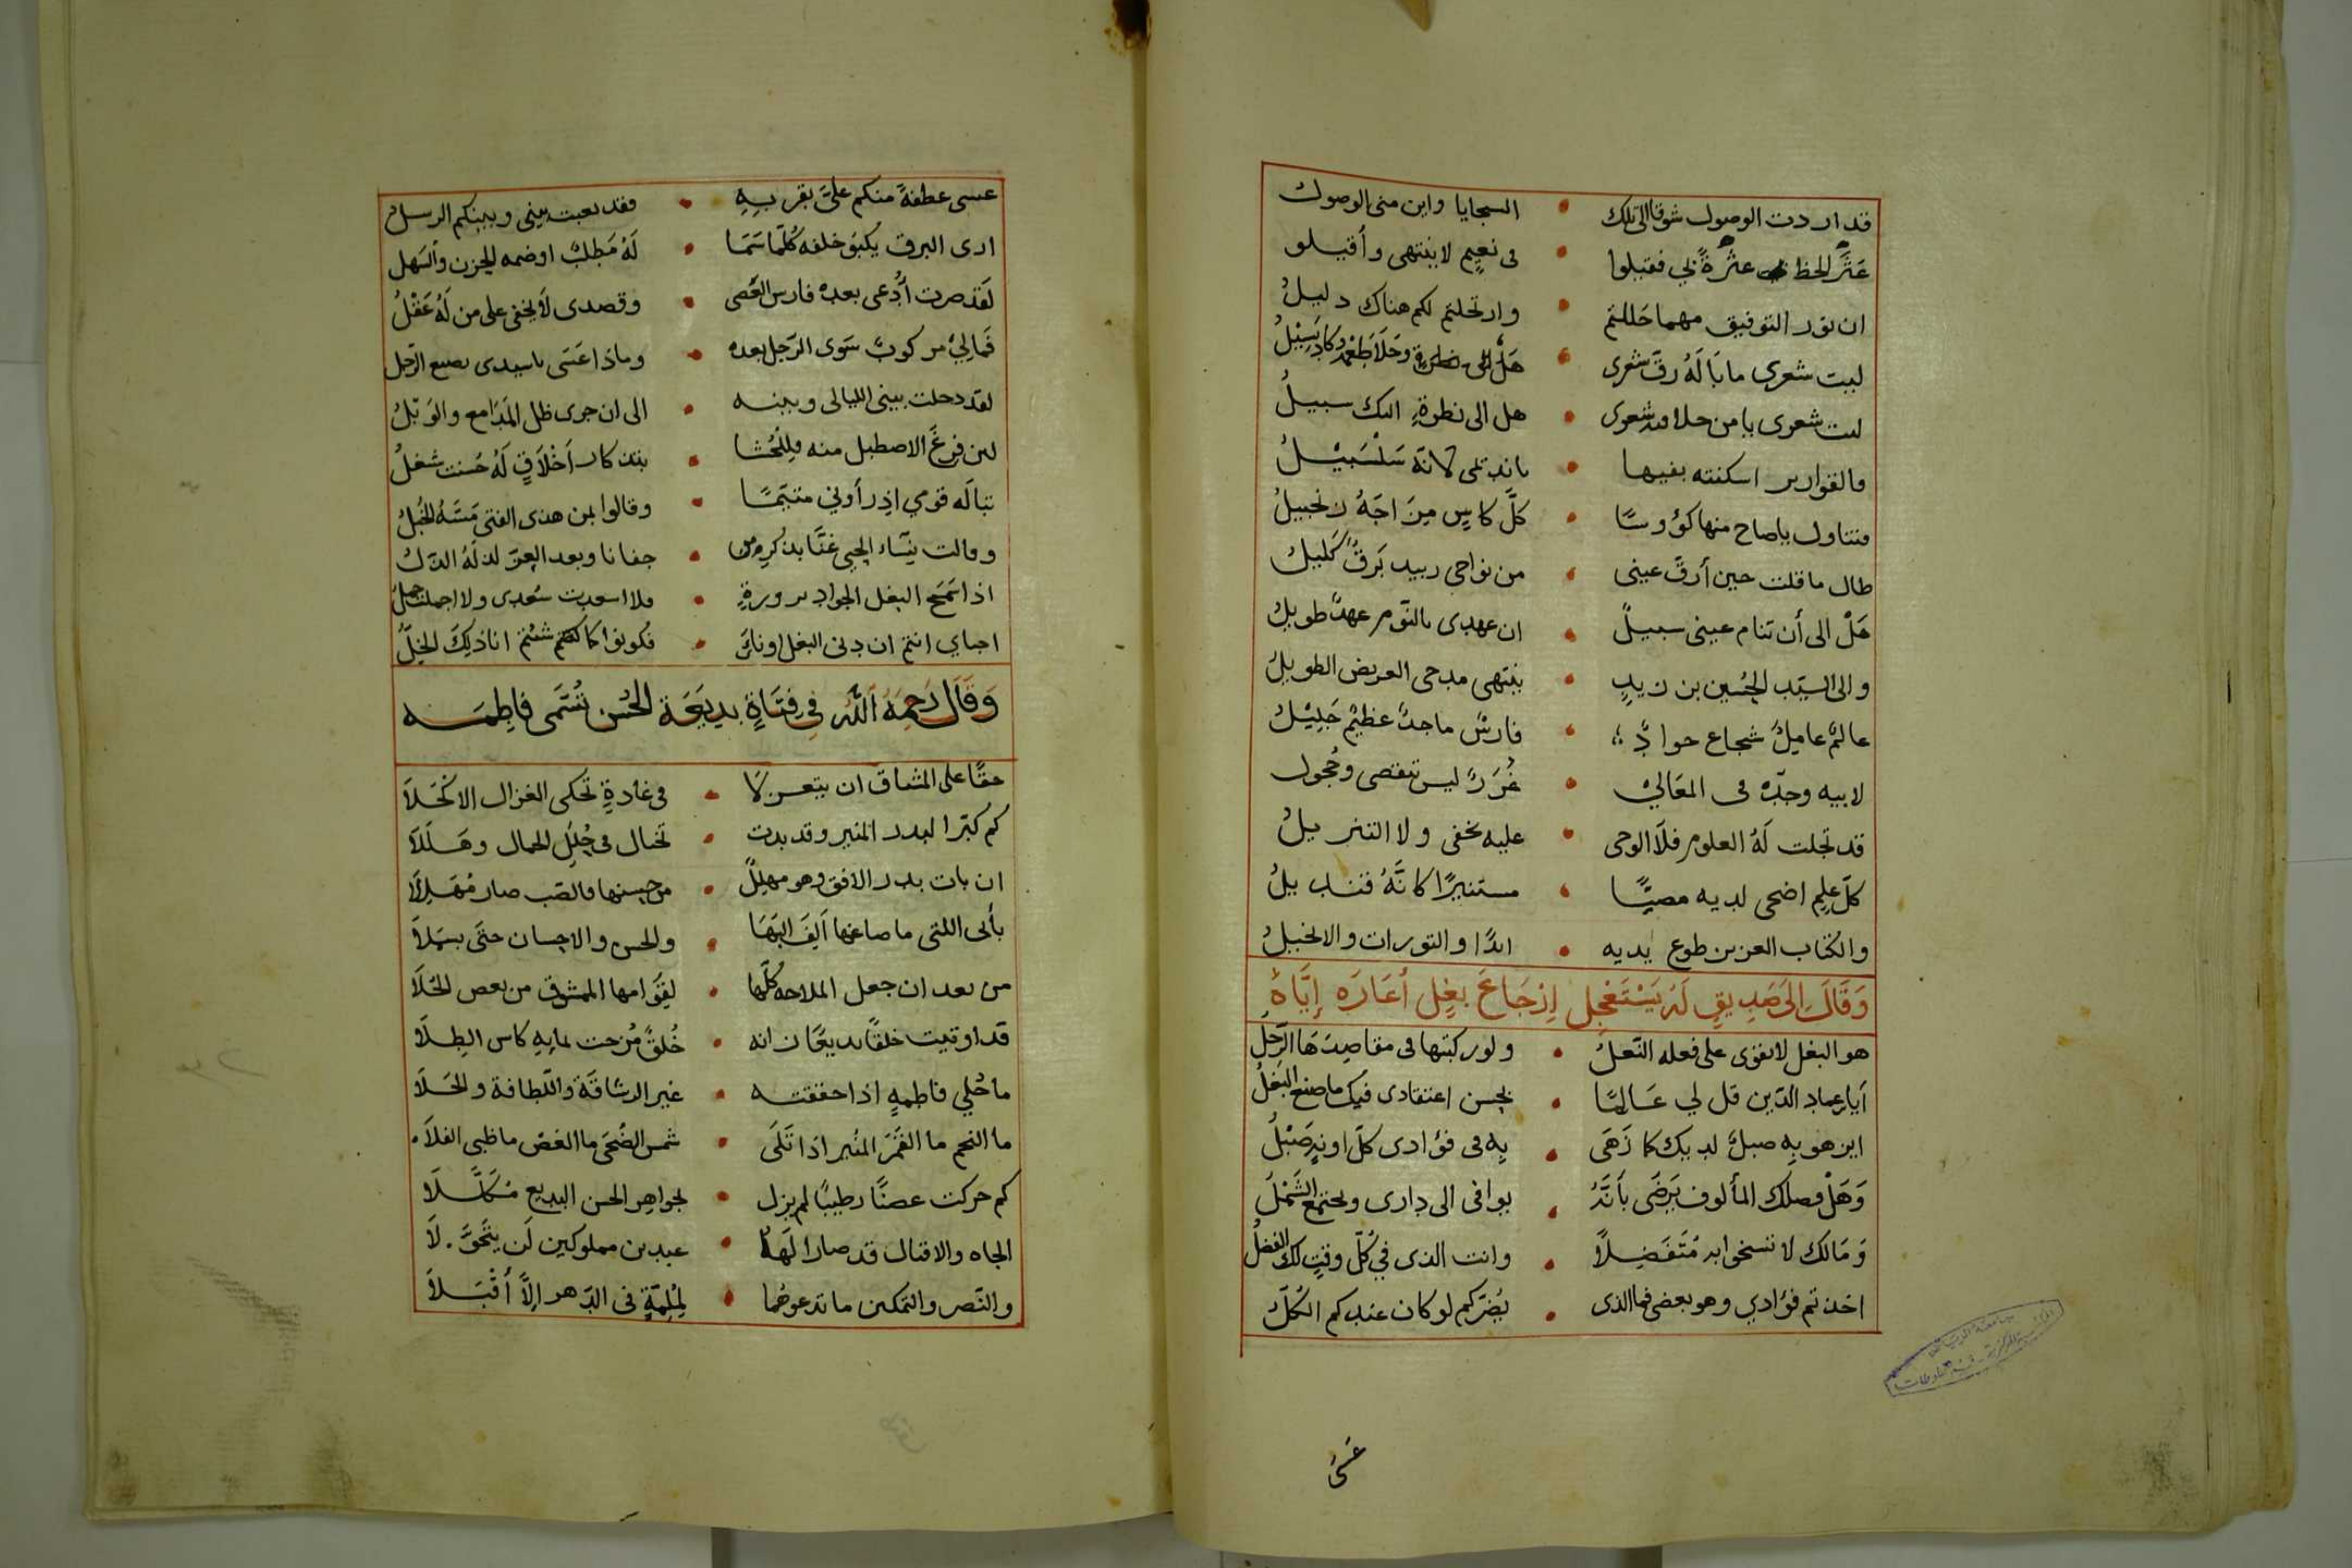 قد اردت الوصول شوقا الى تلك • السجايا واين منى الوصول
عثر الحظ عثرة لي فقيلوا • فى نعيم لا ينتهى وأقيلو
ان نور التوفيق مهما حللتم • وارتحلتم لكم هناك دليل
ليت شعرى ما باله رق شعرى • هل الى نظرة وحلا طعمه وكاد يسيل
ليت شعرى يا من حلا فيه شعرى • هل الى نظرة اليك سبيل
والقوارير اسكنته بفيها • لانه سلسبيل
فتناول ياصاح منها كؤوسا • كل كاس مزاجه زنجبيل
طال ما قلت حين أرق عينى • من نواحى زبيد برق كليل
هل الى أن تنام عينى سبيل • ان عهدى بالنوم عهد طويل
والى السيد الحسين بن زيد • ينتهى مدحى العريض الطويل
عالم عامل شجاع جواد • فارس ماجد عظيم جليل
لابيه وجده فى المعالي • غرر ليس تنقصى وحجول
قد تجلت له العلوم فلا الوحى • عليه يخفى ولا التنزيل
كل علم اضحى لديه مضيا • مستنيرا كانه قنديل
والكتاب العزيز طوع يديه • ابدا والتورات والانجيل
وقال الى صديق له يستعجل ارجاع بغل أعاره إياه
هو البغل لا يقوى على فعله النعل • ولو ركبتها فى مقاصدها الرجل
أيا عماد الدين قل لي عالما • بحسن اعتقادى فيك ما صنع البغل
اين هو به صبل لديك كما زهى • به فى فؤادى كل اونة صبل
وهل فصلك المألوف يرضى بأنه • يوافى الى دارى ويجتمع الشمل
ومالك لا تسخى به متفضلا • وانت الذى في كل وقت لك الفضل
اخذتم فؤادي وهو بعضى فما الذى • يضركم لو كان عندكم الكل
عسى
عسى عطفة منكم علي بقربه • فقد تعبت بينى وبينكم الرسل
ارى البرق يكبو خلفه كلما سما • له مطلب اوضمه الحزن والسهل
لقد صرت أدعى بعده فارس العصى • وقصدى لا يخفى على من له عقل
فما لي مركوب سوى الرجل بعده • وماذا عسى يا سيدى يصنع الرجل
لقد دخلت بينى الليالى وبينه • الى ان جرى طل المدامع والوبل
لئن فرغ الاصطبل منه فللحشا • بتذكار أخلاق له حسنت شغل
تباله قومي اذ رأوني متيما • وقالوا بمن هذى الفتى مسه الخبل
وقالت نساء الحي عنا بذكر من • جفانا وبعد العز لذ له الذل
اذا سمح البغل الجواد بزورة • فلا اسعدت سعدى ولا اجملت جمل
احباي انتم ان دنى البغل او نأى • فكونوا كما شئتم انا ذلك الخل
وقال رحمه الله في فتاة بديعة الحسن تسمى فاطمه
حقا على المشتاق ان يتغزلا • فى غادة تحكى الغزال الاكحلا
كم كبر البدر المنير وقد بدت • تختال فى حلل الجمال وهللا
ان بات بدر الافق وهو مهلل • من حسنها فالصب صار مهللا
بأبى اللتى ما صاغها الف البها • والحسن والاحسان حتى بسملا
من بعد ان جعل الملاحة كلها • لقوامها الممشوق من بعض الحلا
قد اوتيت خلقا بديعا زانه • خلق مزجت بمايه كاس الطلا
ما حلي فاطمة اذا حققته • غير الرشاقة واللطافة والحلا
ما النجم ما القمر المنير اذا تلى • شمس الضحى ما الغصن ما ظبى الفلا
كم حركت غصنا رطيبا لم يزل • بجواهر الحسن البديع مكللا
الجاه والاقبال قد صارا لها • عبدين مملوكين لن يتحولا
والنصر والتمكين ما تدعوهما • لملمة فى الدهر إلا أقبلا